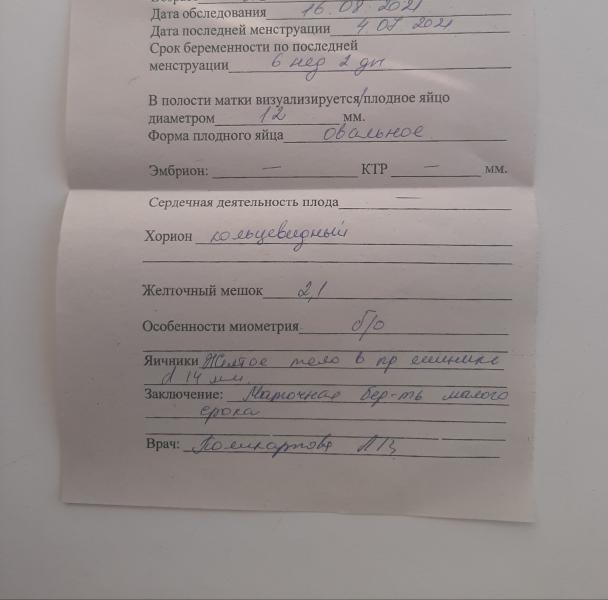 Дата обследования 16.08.2021
Дата последней менструации 4.07.2021
Срок беременности по последней
менструации 6 нед 2 дн
В полости матки визуализируется/плодное яйцо
диаметром 12 мм.
Форма плодного яйца овальное
Эмбрион: — КТР — мм.
Сердечная деятельность плода —
Хорион кольцевидный
Желточный мешок 2,1
Особенности миометрия б/о
Яичники Желтое тело в пр яичнике
d 14 мм.
Заключение: Маточная бер-ть малого
срока
Врач: